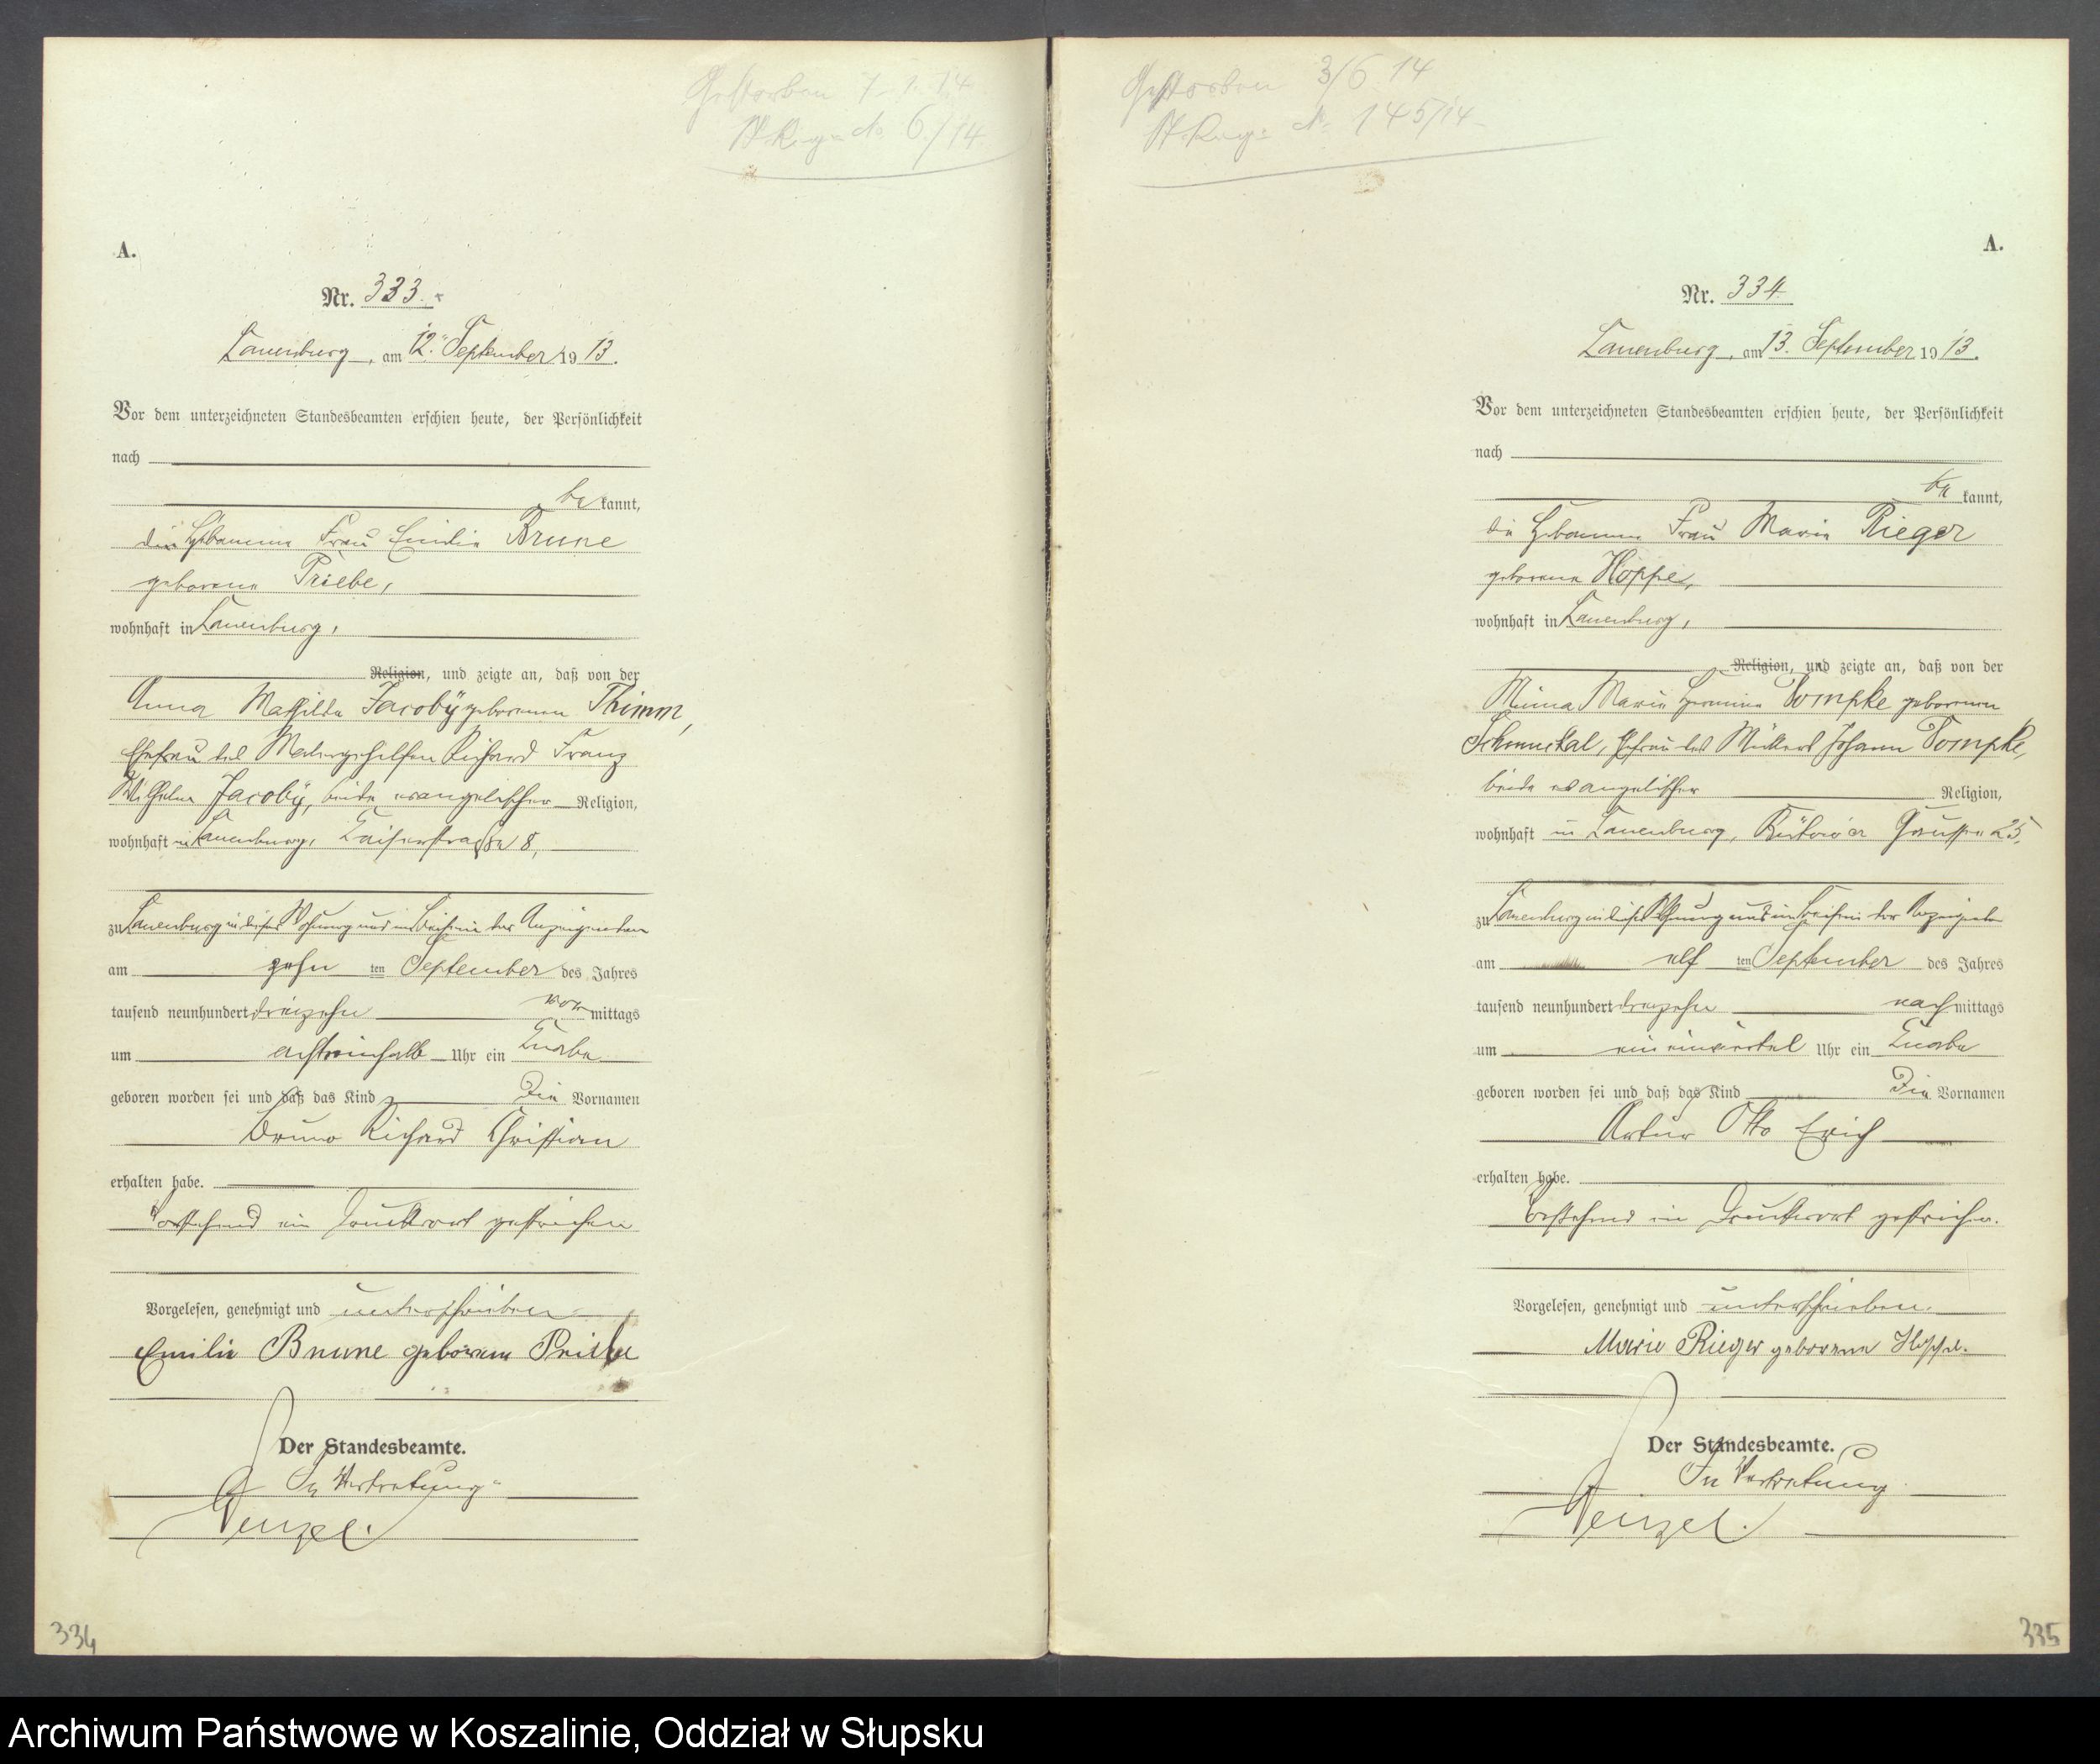 Gestorben 7. 1. 14.
St. Reg. No 6/14
A.
Nr. 333.
Lauenburg, am 12. September 1913.
Vor dem unterzeichneten Standesbeamten erschien heute, der Persönlichkeit
nach
be kannt,
die Hebamme Frau Emilie Brune
geborene Priebe,
wohnhaft in Lauenburg,
Religion, und zeigte an, daß von der
Anna Mathilde Jacoby geborenen Thimm,
Ehefrau des Malergehilfen Richard Franz
Wilhelm Jacoby, beide evangelischer Religion,
wohnhaft in Lauenburg, Kaiserstraße 8,
zu Lauenburg in dieser Wohnung und im Beisein der Anzeigenden
am zehn ten September des Jahres
tausend neunhundert dreizehn vor mittags
um achteinhalb Uhr ein Knabe
geboren worden sei und daß das Kind die Vornamen
Bruno Richard Christian
erhalten habe.
Vorstehend ein Druckwort gestrichen
Vorgelesen, genehmigt und unterschrieben
Emilie Brune geborene Priebe
Der Standesbeamte.
In Vertretung
Wenzel.
334
Gestorben 3/6 14
St. Reg. No 145/14
A.
Nr. 334
Lauenburg, am 13. September 1913.
Vor dem unterzeichneten Standesbeamten erschien heute, der Persönlichkeit
nach
be kannt,
die Hebamme Frau Marie Rieger
geborene Hoppe,
wohnhaft in Lauenburg,
Religion, und zeigte an, daß von der
Minna Marie Hermine Pompke geborenen
Schmuckal, Ehefrau des Müllers Johann Pompke,
beide evangelischer Religion,
wohnhaft in Lauenburg, Bütower Chaussee 25,
zu Lauenburg in dieser Wohnung und im Beisein der Anzeigenden
am elf ten September des Jahres
tausend neunhundert dreizehn nach mittags
um ein einviertel Uhr ein Knabe
geboren worden sei und daß das Kind die Vornamen
Artur Otto Erich
erhalten habe.
Vorstehend ein Druckwort gestrichen.
Vorgelesen, genehmigt und unterschrieben.
Marie Rieger geborene Hoppe.
Der Standesbeamte.
In Vertretung
Wenzel.
335
Archiwum Państwowe w Koszalinie, Oddział w Słupsku